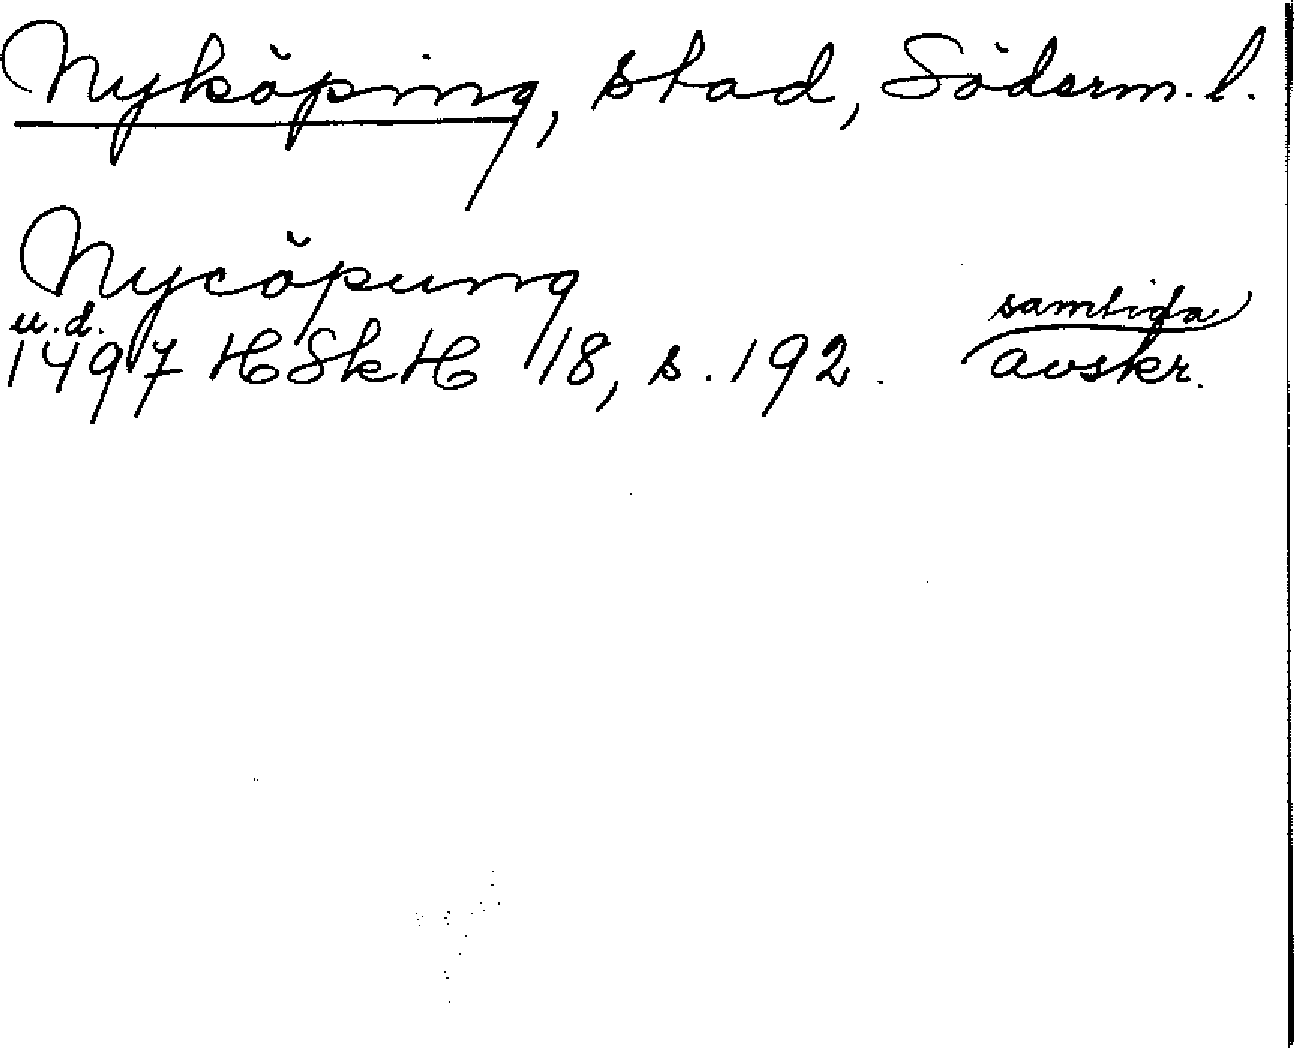 Nyköping, stad, Söderm. l.
Nycöpung
u.d.
samtida
1497 HSkH 18, s. 192. avskr.